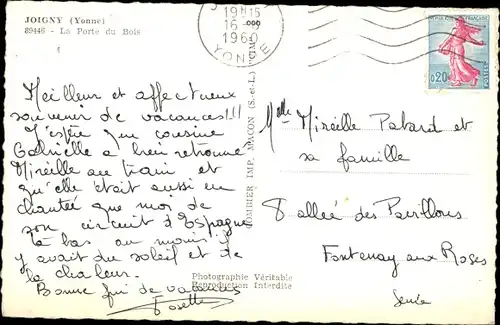 JOIGNY (Yonne)
89446 - La Porte du Bois
19H15
16
1960
YONNE
0,20
POSTES
Meilleur et affectueux
souvenir de vacances!!!
J'espère que cousine
Gabrielle a bien retrouvé
Mireille au train et
qu'elle était aussi en
chantée que moi de
son circuit d'Espagne
là bas au moins il
y avait du soleil et de
la chaleur.
Bonne fin de vacances
Josette
COMBIER IMP. MACON (S.-et-L.) CIM
Photographie Véritable
Reproduction Interdite
Melle Mireille Patard et
sa famille
8 allée des Pavillons
Fontenay aux Roses
Seine